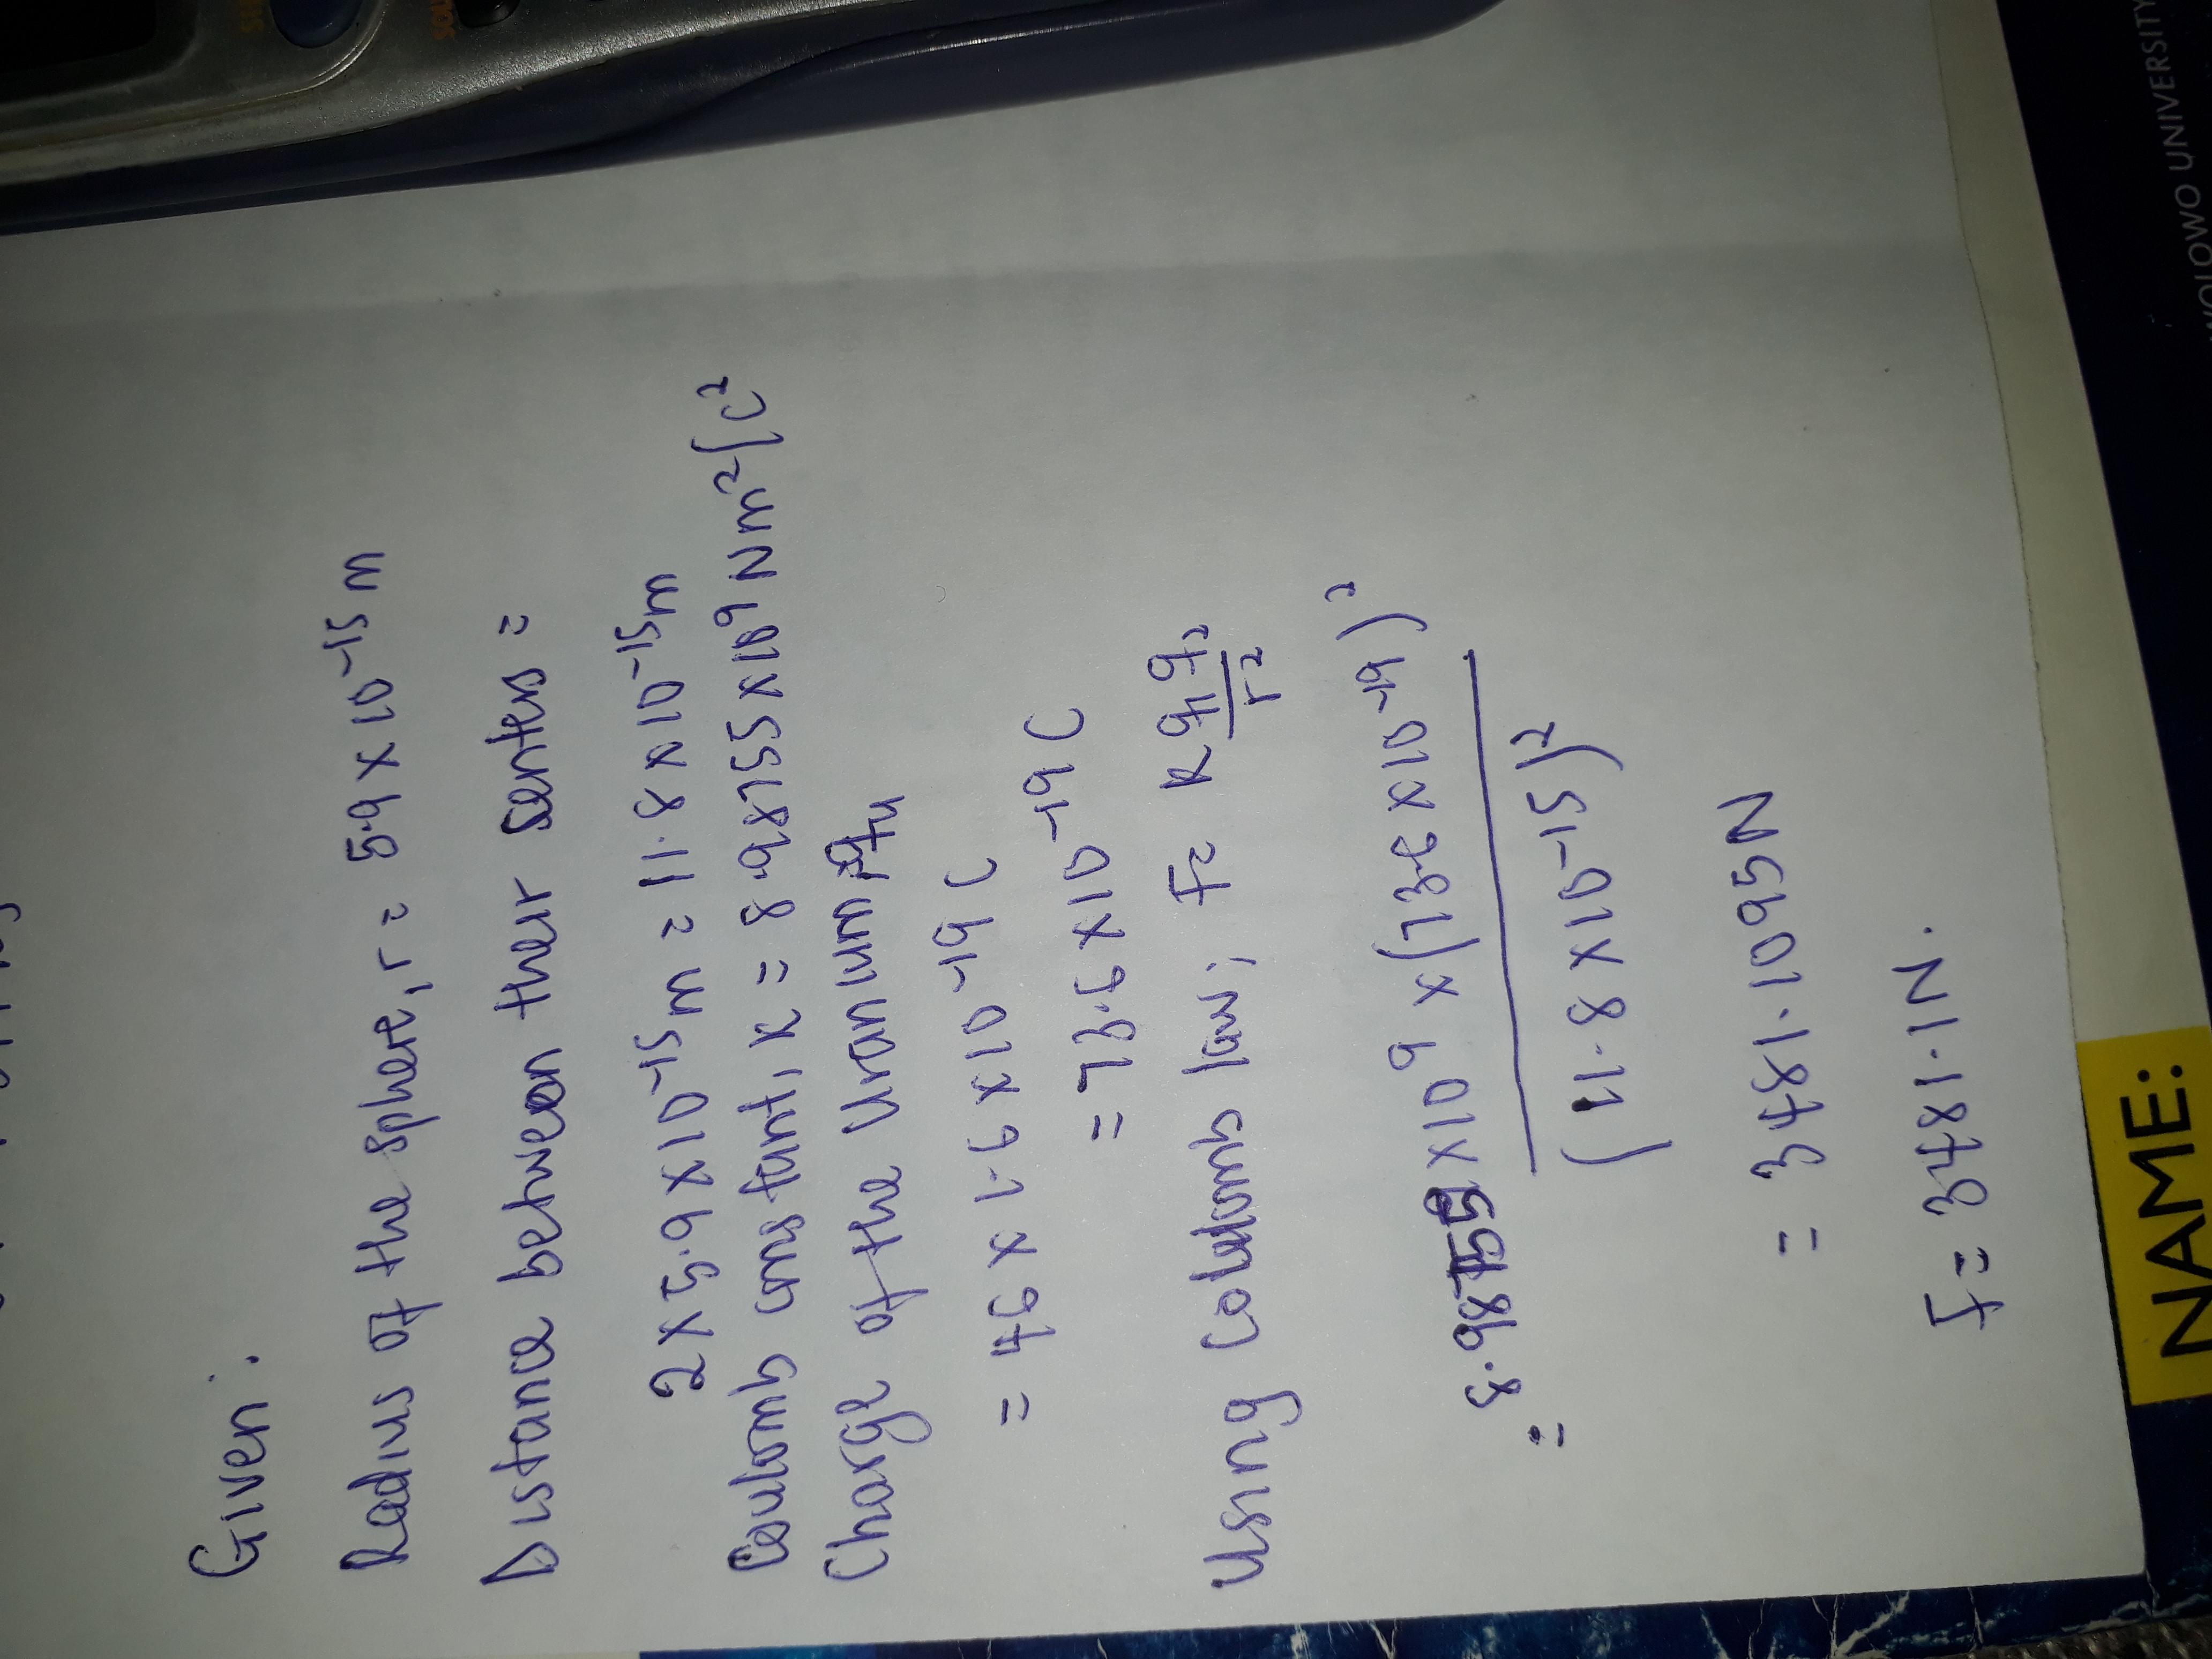 Given:
Radius of the sphere, r = 5.9 x 10⁻¹⁵ m
Distance between their centres =
2 x 5.9 x 10⁻¹⁵ m = 11.8 x 10⁻¹⁵ m
Coulomb constant, K = 8.98755 x 10⁹ Nm²/C²
Charge of the Uranium
= 46 x 1.6 x 10⁻¹⁹ C
= 73.6 x 10⁻¹⁹ C
Using Coloumbs law; F = K q₁q₂/r²
= 8.98755 x 10⁹ x (73.6 x 10⁻¹⁹)²
(11.8 x 10⁻¹⁵)²
= 3481.1095N
F = 3481.1N.
NAME:
WOLOWO UNIVERSITY